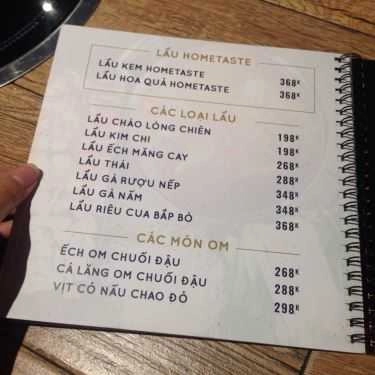 LẨU HOMETASTE
LẨU KEM HOMETASTE 368K
LẨU HOA QUẢ HOMETASTE 368K
CÁC LOẠI LẨU
LẨU CHÁO LÒNG CHIÊN 198K
LẨU KIM CHI 198K
LẨU ẾCH MĂNG CAY 268K
LẨU THÁI 288K
LẨU GÀ RƯỢU NẾP 348K
LẨU GÀ NẤM 348K
LẨU RIÊU CUA BẮP BÒ 368K
CÁC MÓN OM
ẾCH OM CHUỐI ĐẬU 268K
CÁ LĂNG OM CHUỐI ĐẬU 288K
VỊT CỎ NẤU CHAO ĐỎ 298K